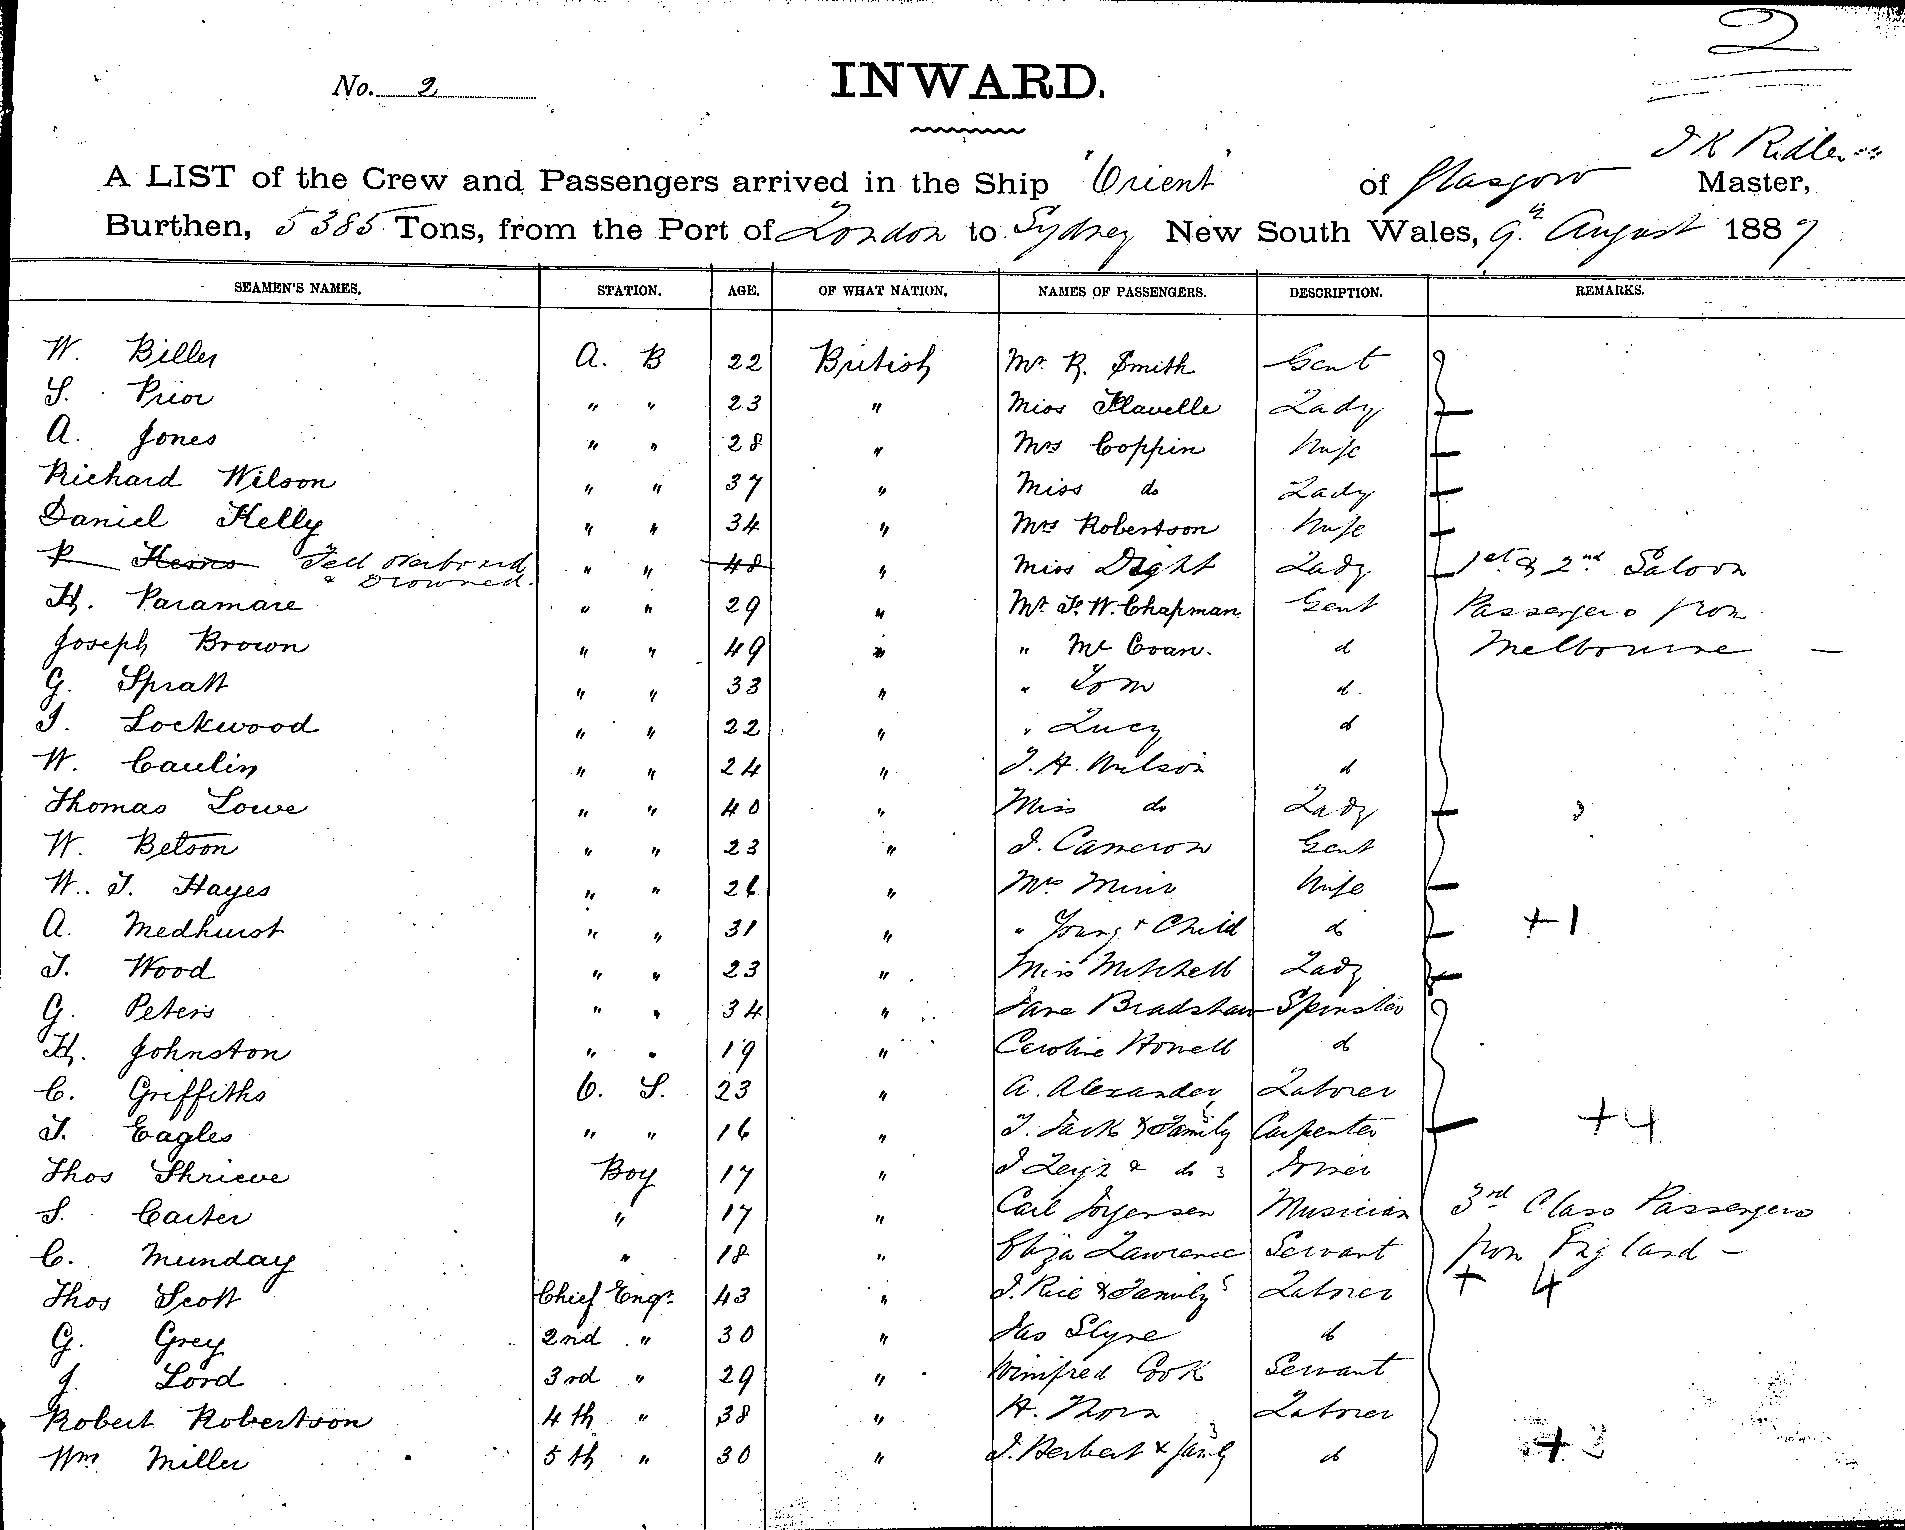 2
No. 2
INWARD.
J K Ridler
A LIST of the Crew and Passengers arrived in the Ship "Orient" of Glasgow Master,
Burthen, 5385 Tons, from the Port of London to Sydney New South Wales, 9th August 1887
SEAMEN'S NAMES. STATION. AGE. OF WHAT NATION. NAMES OF PASSENGERS. DESCRIPTION. REMARKS.
W. Biller A. B 22 British Mr. R. Smith Gent
S. Prior " " 23 " Miss Flavelle Lady
A. Jones " " 28 " Mrs Coppin Wife
Richard Wilson " " 37 " Miss do Lady
Daniel Kelly " " 34 " Mrs Robertson Wife
P Fell overboard & Drowned. " " 48 " Miss Dight Lady 1st & 2nd Saloon
H. Paramare " " 29 " Mr. F. W. Chapman Gent Passengers from
Joseph Brown " " 49 " " Mc Coan. d Melbourne —
G. Spratt " " 33 " " Tom d.
J. Lockwood " " 22 " " Lucy d
W. Caulin " " 24 " J. H. Wilson d
Thomas Lowe " " 40 " Miss do Lady
W. Betson " " 23 " J. Cameron Gent
W. J. Hayes " " 26 " Mrs Muir Wife
A. Medhurst " " 31 " " Young & Child d +1
J. Wood " " 23 " Miss Mitchell Lady
G. Peters " " 34 " Jane Bradshaw Spinster
H. Johnston " " 19 " Caroline Howell d
C. Griffiths O. S. 23 " A. Alexander Laborer
J. Eagles " " 16 " T. Jack & Family 5 Carpenter +4
Thos Shrieve Boy 17 " J & do 3 Joiner
S. Carter " 17 " Carl Jorgensen Musician 3rd Class Passengers
C. Munday " 18 " Eliza Lawrence Servant from England —
Thos Scott Chief Engr. 43 " J. Rice & Family 5 Laborer + 4
G. Grey 2nd " 30 " Jas Slyne d
J. Lord 3rd " 29 " Winifred Cook Servant
Robert Robertson 4th " 38 " H. Thorn Laborer
Wm Miller 5th " 30 " J. Herbert & Family 3 d + 2